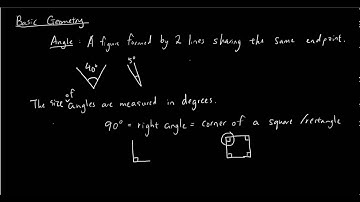 Basic Geometry
Angle: A figure formed by 2 lines sharing the same endpoint.
40° 5°
The size of angles are measured in degrees.
90° = right angle = corner of a square/rectangle